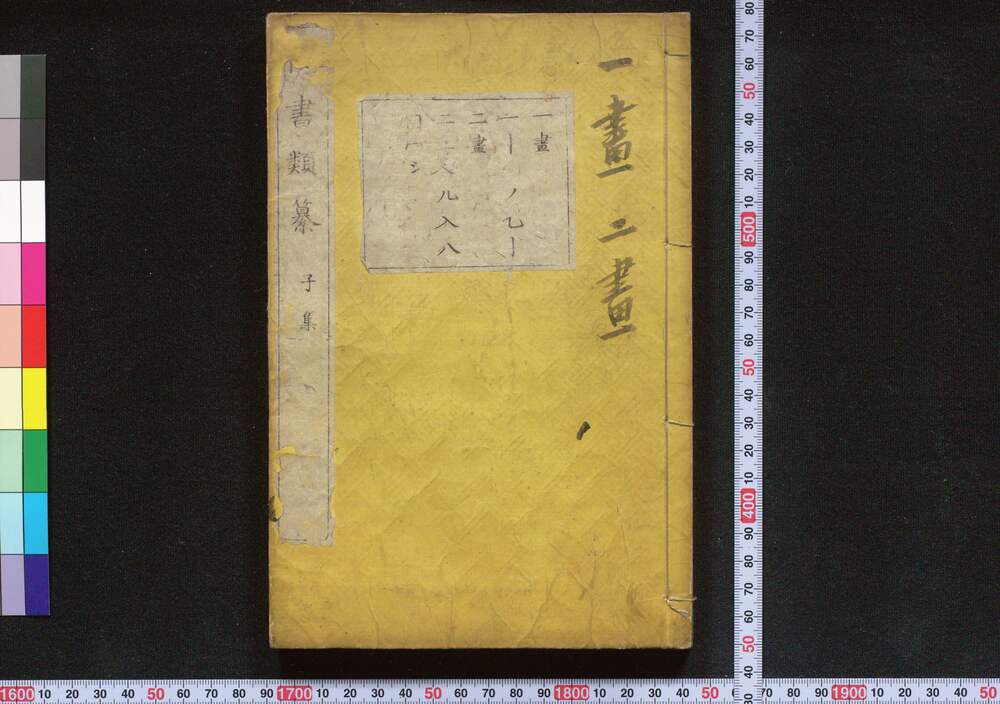 一畫 二畫
一畫
一丨 ノ乙亅
二畫
二 儿入八
書類纂 子集
1600 10 20 30 40 50 60 70 80 90 1700 10 20 30 40 50 60 70 80 90 1800 10 20 30 40 50 60 70 80 90 1900 10 20 30 40 50
80 70 60 50 40 30 20 10 500 90 80 70 60 50 40 30 20 10 400 90 80 70 60 50 40 30